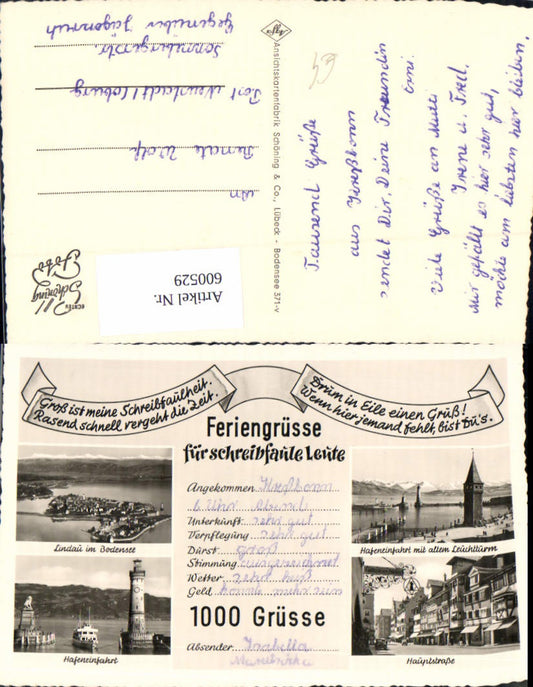 Tausend Grüße
aus Kreßbronn
sendet Dir, Deine Freundin
Viele Grüße an Mutti
Irene u. Fred.
Mir gefällt es hier sehr gut,
möchte am liebsten hier bleiben.
Ansichtskartenfabrik Schöning & Co., Lübeck - Bodensee 371-v
An
Renate Wolf
Post Neustadt/Coburg
Sonnebergerstr.
Gegenüber
Agfa
ECHTES
Schöning
Foto
Artikel Nr.
600529
Groß ist meine Schreibfaulheit.
Rasend schnell vergeht die Zeit.
Drum in Eile einen Gruß!
Wenn hier jemand fehlt, bist Du's.
Feriengrüsse
für schreibfaule Leute
Angekommen Kreßbronn
6 Uhr Abend
Unterkunft sehr gut
Verpflegung sehr gut
Durst groß
Stimmung ausgezeichnet
Wetter sehr heiß
Geld könnte mehr sein
1000 Grüsse
Absender Isabella
Lindau im Bodensee
Hafeneinfahrt
Hafeneinfahrt mit altem Leuchtturm
Hauptstraße